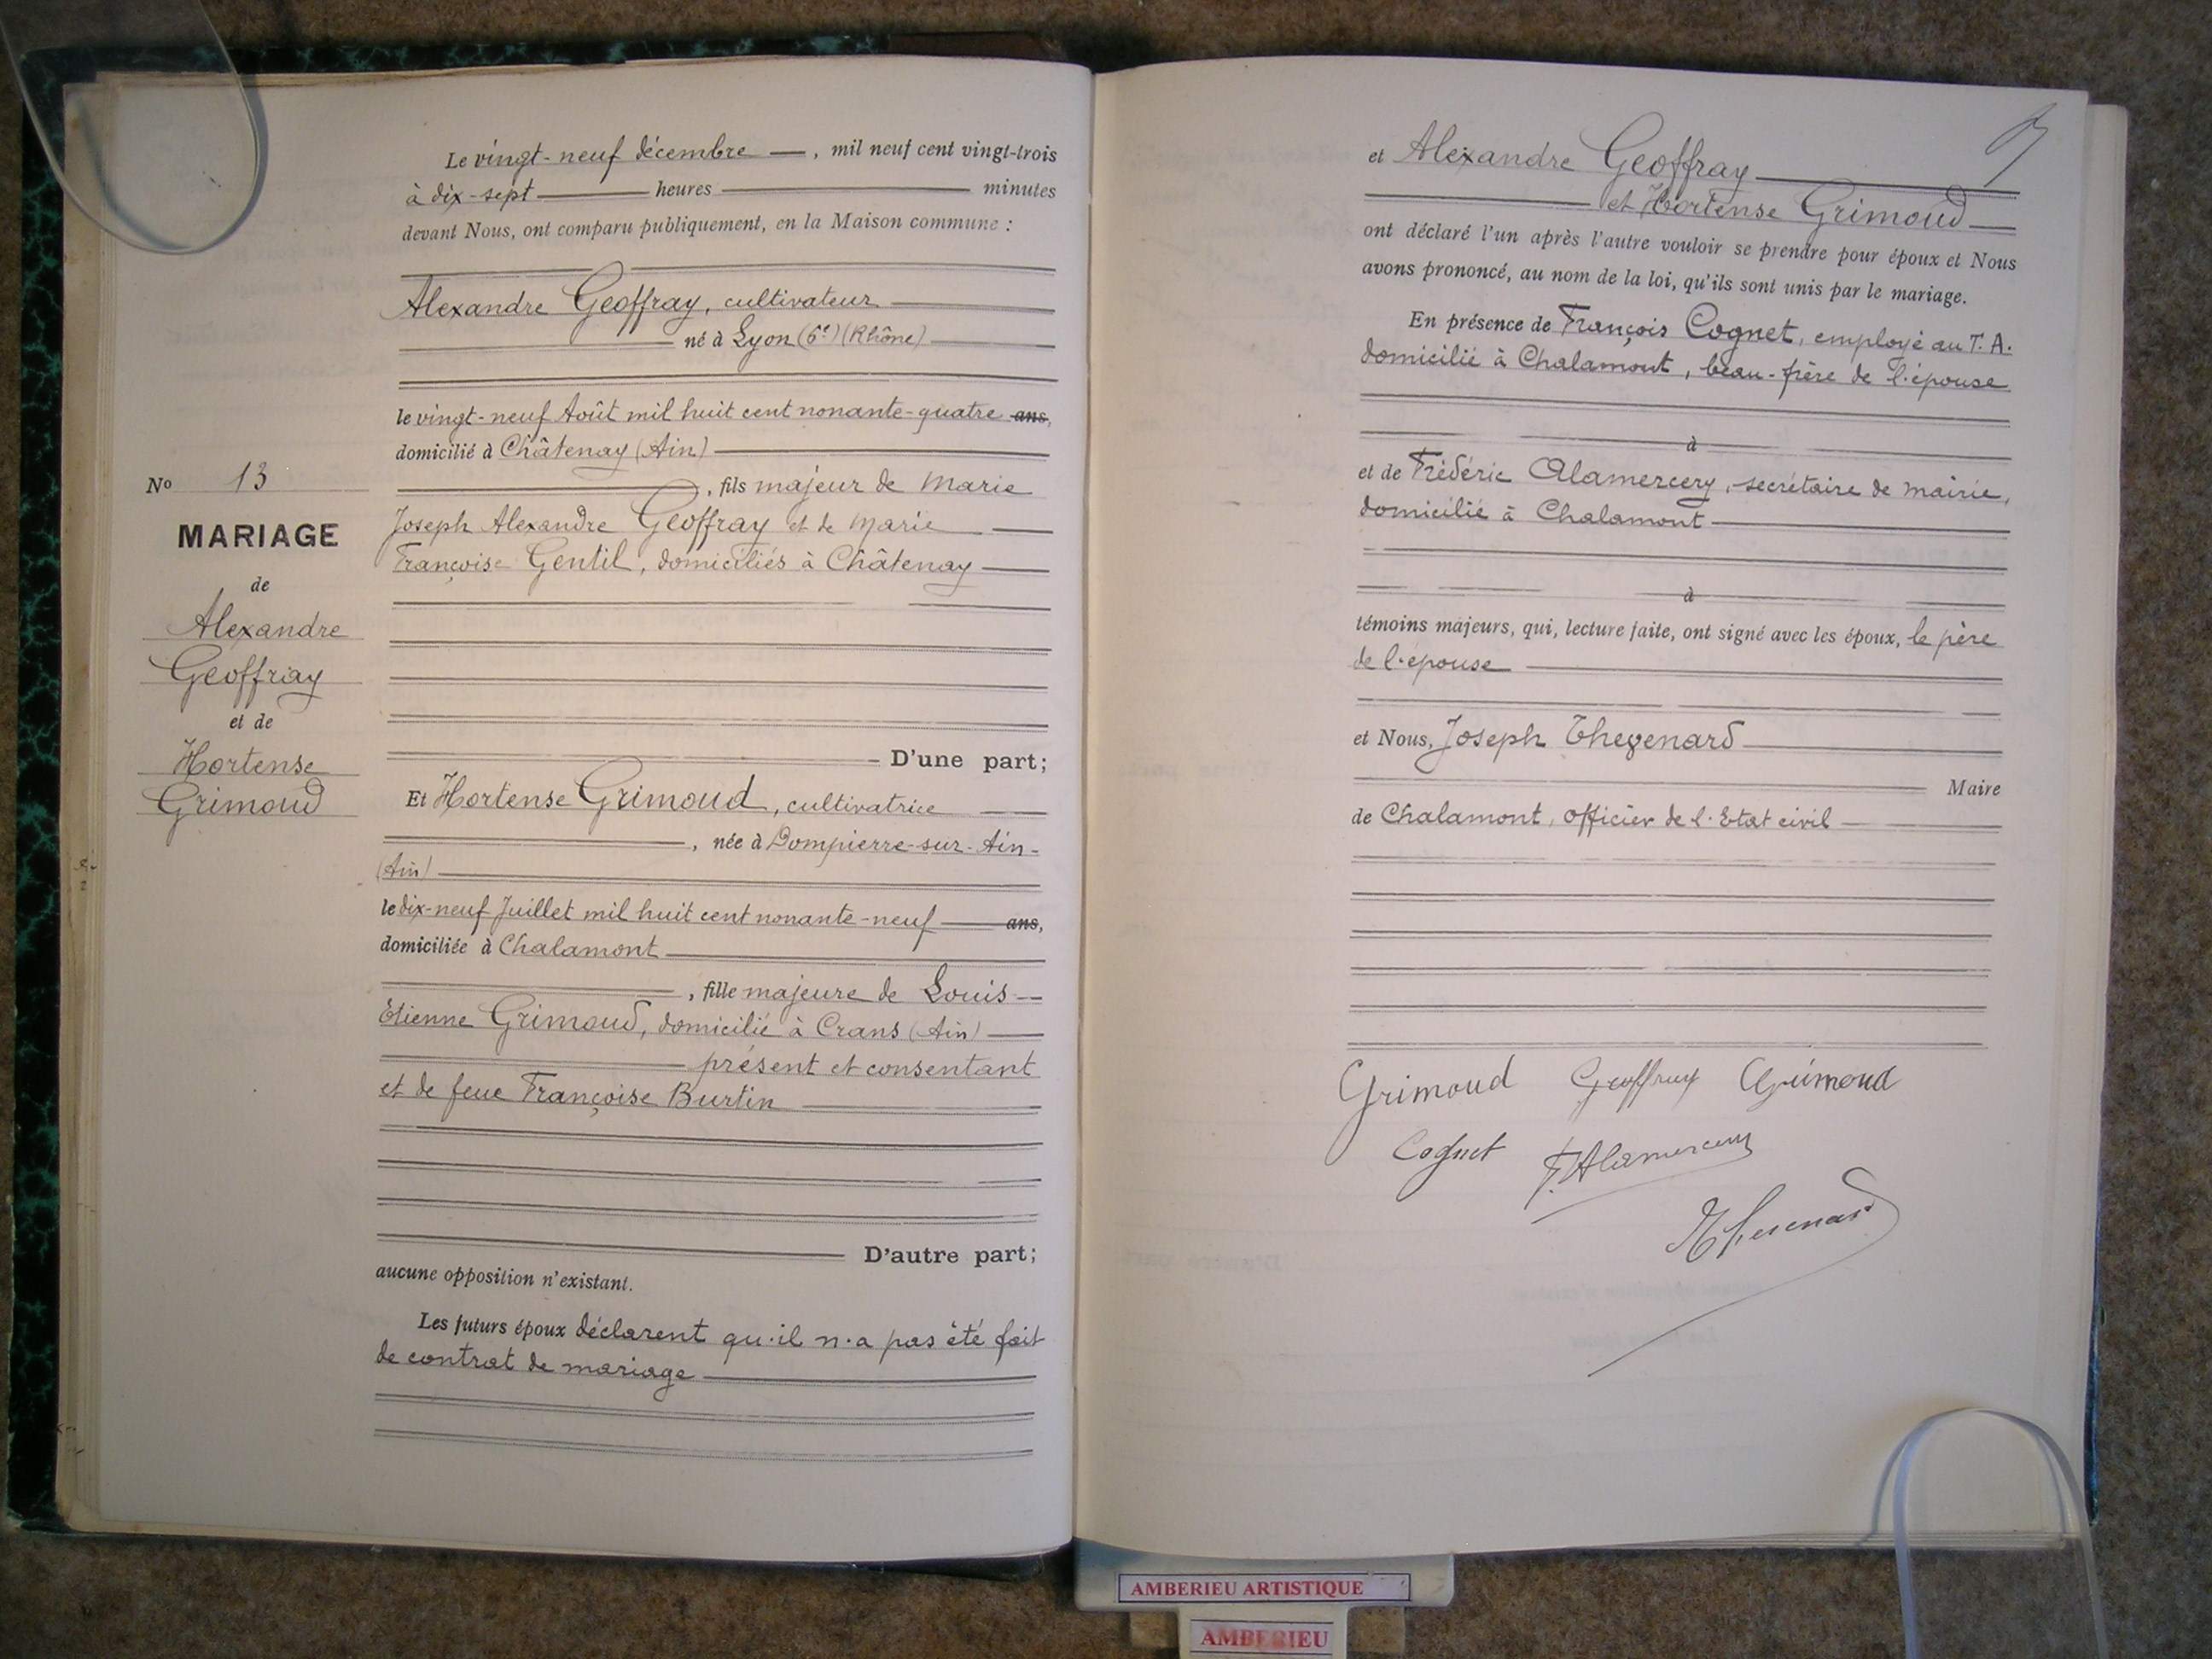 Le vingt-neuf décembre —, mil neuf cent vingt-trois
à dix-sept — heures — minutes
devant Nous, ont comparu publiquement, en la Maison commune :
Alexandre Geoffray, cultivateur
né à Lyon (6e) (Rhône)
le vingt-neuf Août mil huit cent nonante-quatre ans,
domicilié à Châtenay (Ain)
, fils majeur de Marie
Joseph Alexandre Geoffray et de Marie
Françoise Gentil, domiciliés à Châtenay
D'une part;
Et Hortense Grimoud, cultivatrice
, née à Dompierre-sur-Ain-
(Ain)
le dix-neuf Juillet mil huit cent nonante-neuf — ans,
domiciliée à Chalamont
, fille majeure de Louis
Etienne Grimoud, domicilié à Crans (Ain)
présent et consentant
et de feue Françoise Burtin
D'autre part;
aucune opposition n'existant.
Les futurs époux déclarent qu'il n'a pas été fait
de contrat de mariage
No 13
MARIAGE
de
Alexandre
Geoffray
et de
Hortense
Grimoud
et Alexandre Geoffray
et Hortense Grimoud
ont déclaré l'un après l'autre vouloir se prendre pour époux et Nous
avons prononcé, au nom de la loi, qu'ils sont unis par le mariage.
En présence de François Cognet, employé au T. A.
domicilié à Chalamont, beau-frère de l'épouse
à
et de Frédéric Alamercery, secrétaire de mairie,
domicilié à Chalamont
à
témoins majeurs, qui, lecture faite, ont signé avec les époux, le père
de l'épouse
et Nous, Joseph Thevenard
Maire
de Chalamont, officier de l'Etat civil
Grimoud Geoffray Grimoud
Cognet F. Alamercery
Thevenard
AMBERIEU ARTISTIQUE
AMBERIEU